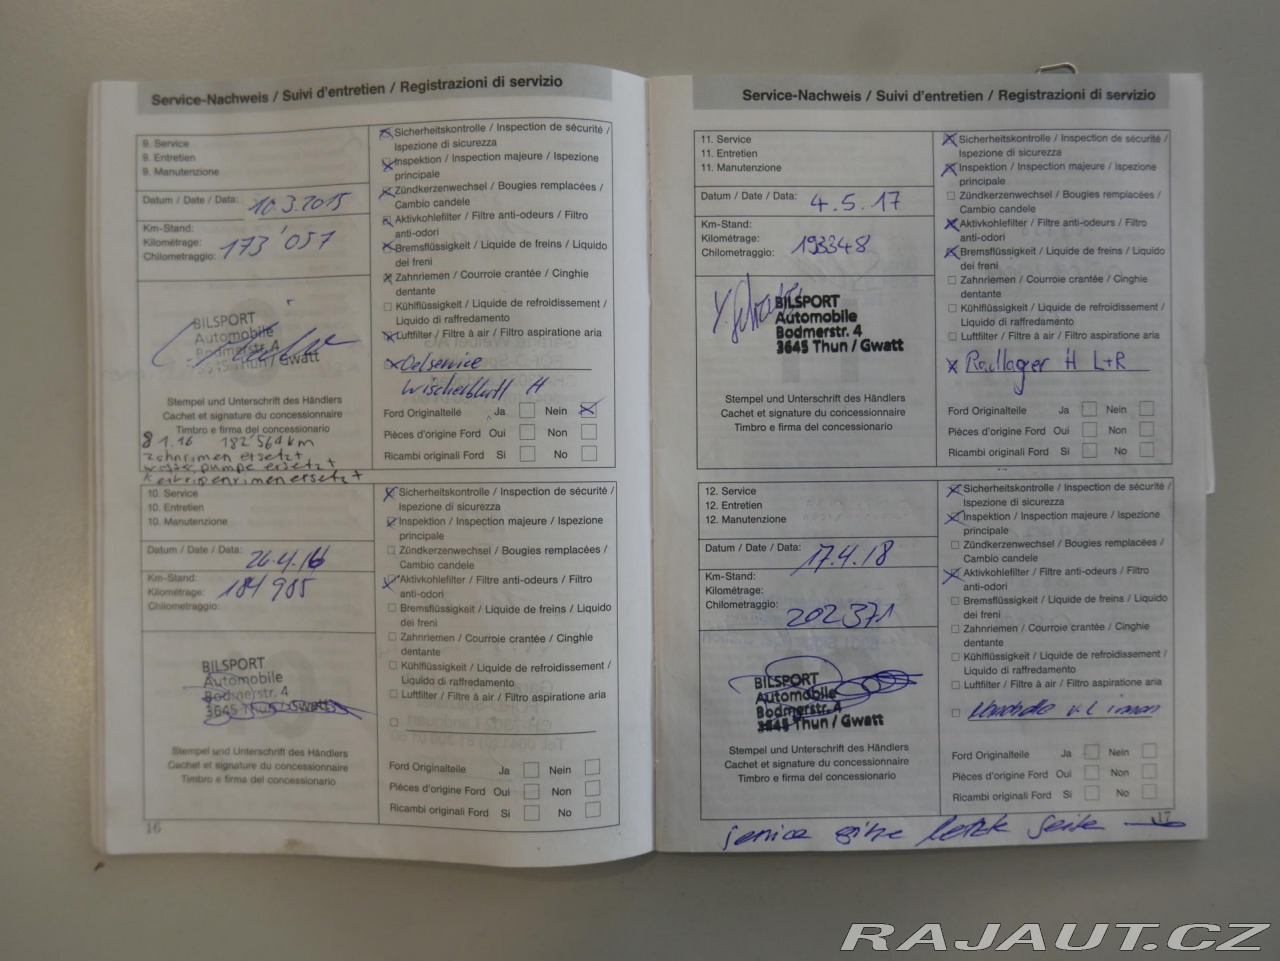 Service-Nachweis / Suivi d'entretien / Registrazioni di servizio
9. Service
9. Entretien
9. Manutenzione
Datum / Date / Data: 10.3.2015
Km-Stand:
Kilométrage: 173'057
Chilometraggio:
BILSPORT
Automobile
Bodmerstr. 4
3645 Thun / Gwatt
Stempel und Unterschrift des Händlers
Cachet et signature du concessionnaire
Timbro e firma del concessionario
8 1.16 182'564 km
Zahnrimen ersetzt
wasserpumpe ersetzt
Keilripenrimen ersetzt
Sicherheitskontrolle / Inspection de sécurité /
Ispezione di sicurezza
Inspektion / Inspection majeure / Ispezione
principale
Zündkerzenwechsel / Bougies remplacées /
Cambio candele
Aktivkohlefilter / Filtre anti-odeurs / Filtro
anti-odori
Bremsflüssigkeit / Liquide de freins / Liquido
dei freni
Zahnriemen / Courroie crantée / Cinghie
dentante
Kühlflüssigkeit / Liquide de refroidissement /
Liquido di raffredamento
Luftfilter / Filtre à air / Filtro aspiratione aria
Oelservice
Wischerblatt H
Ford Originalteile Ja Nein
Pièces d'origine Ford Oui Non
Ricambi originali Ford Si No
10. Service
10. Entretien
10. Manutenzione
Datum / Date / Data: 26.4.16
Km-Stand:
Kilométrage: 184985
Chilometraggio:
BILSPORT
Automobile
Bodmerstr. 4
3645 Thun / Gwatt
Stempel und Unterschrift des Händlers
Cachet et signature du concessionnaire
Timbro e firma del concessionario
Sicherheitskontrolle / Inspection de sécurité /
Ispezione di sicurezza
Inspektion / Inspection majeure / Ispezione
principale
Zündkerzenwechsel / Bougies remplacées /
Cambio candele
Aktivkohlefilter / Filtre anti-odeurs / Filtro
anti-odori
Bremsflüssigkeit / Liquide de freins / Liquido
dei freni
Zahnriemen / Courroie crantée / Cinghie
dentante
Kühlflüssigkeit / Liquide de refroidissement /
Liquido di raffredamento
Luftfilter / Filtre à air / Filtro aspiratione aria
Ford Originalteile Ja Nein
Pièces d'origine Ford Oui Non
Ricambi originali Ford Si No
16
Service-Nachweis / Suivi d'entretien / Registrazioni di servizio
11. Service
11. Entretien
11. Manutenzione
Datum / Date / Data: 4.5.17
Km-Stand:
Kilométrage: 193348
Chilometraggio:
BILSPORT
Automobile
Bodmerstr. 4
3645 Thun / Gwatt
Stempel und Unterschrift des Händlers
Cachet et signature du concessionnaire
Timbro e firma del concessionario
Sicherheitskontrolle / Inspection de sécurité /
Ispezione di sicurezza
Inspektion / Inspection majeure / Ispezione
principale
Zündkerzenwechsel / Bougies remplacées /
Cambio candele
Aktivkohlefilter / Filtre anti-odeurs / Filtro
anti-odori
Bremsflüssigkeit / Liquide de freins / Liquido
dei freni
Zahnriemen / Courroie crantée / Cinghie
dentante
Kühlflüssigkeit / Liquide de refroidissement /
Liquido di raffredamento
Luftfilter / Filtre à air / Filtro aspiratione aria
Radlager H L+R
Ford Originalteile Ja Nein
Pièces d'origine Ford Oui Non
Ricambi originali Ford Si No
12. Service
12. Entretien
12. Manutenzione
Datum / Date / Data: 17.4.18
Km-Stand:
Kilométrage:
Chilometraggio: 202371
BILSPORT
Automobile
Bodmerstr. 4
3645 Thun / Gwatt
Stempel und Unterschrift des Händlers
Cachet et signature du concessionnaire
Timbro e firma del concessionario
Sicherheitskontrolle / Inspection de sécurité /
Ispezione di sicurezza
Inspektion / Inspection majeure / Ispezione
principale
Zündkerzenwechsel / Bougies remplacées /
Cambio candele
Aktivkohlefilter / Filtre anti-odeurs / Filtro
anti-odori
Bremsflüssigkeit / Liquide de freins / Liquido
dei freni
Zahnriemen / Courroie crantée / Cinghie
dentante
Kühlflüssigkeit / Liquide de refroidissement /
Liquido di raffredamento
Luftfilter / Filtre à air / Filtro aspiratione aria
v. L innen
Ford Originalteile Ja Nein
Pièces d'origine Ford Oui Non
Ricambi originali Ford Si No
17
Service letzte Seite
RAJAUT.CZ